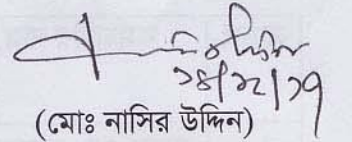 ২৪/১২/১৭
(মোঃ নাসির উদ্দিন)